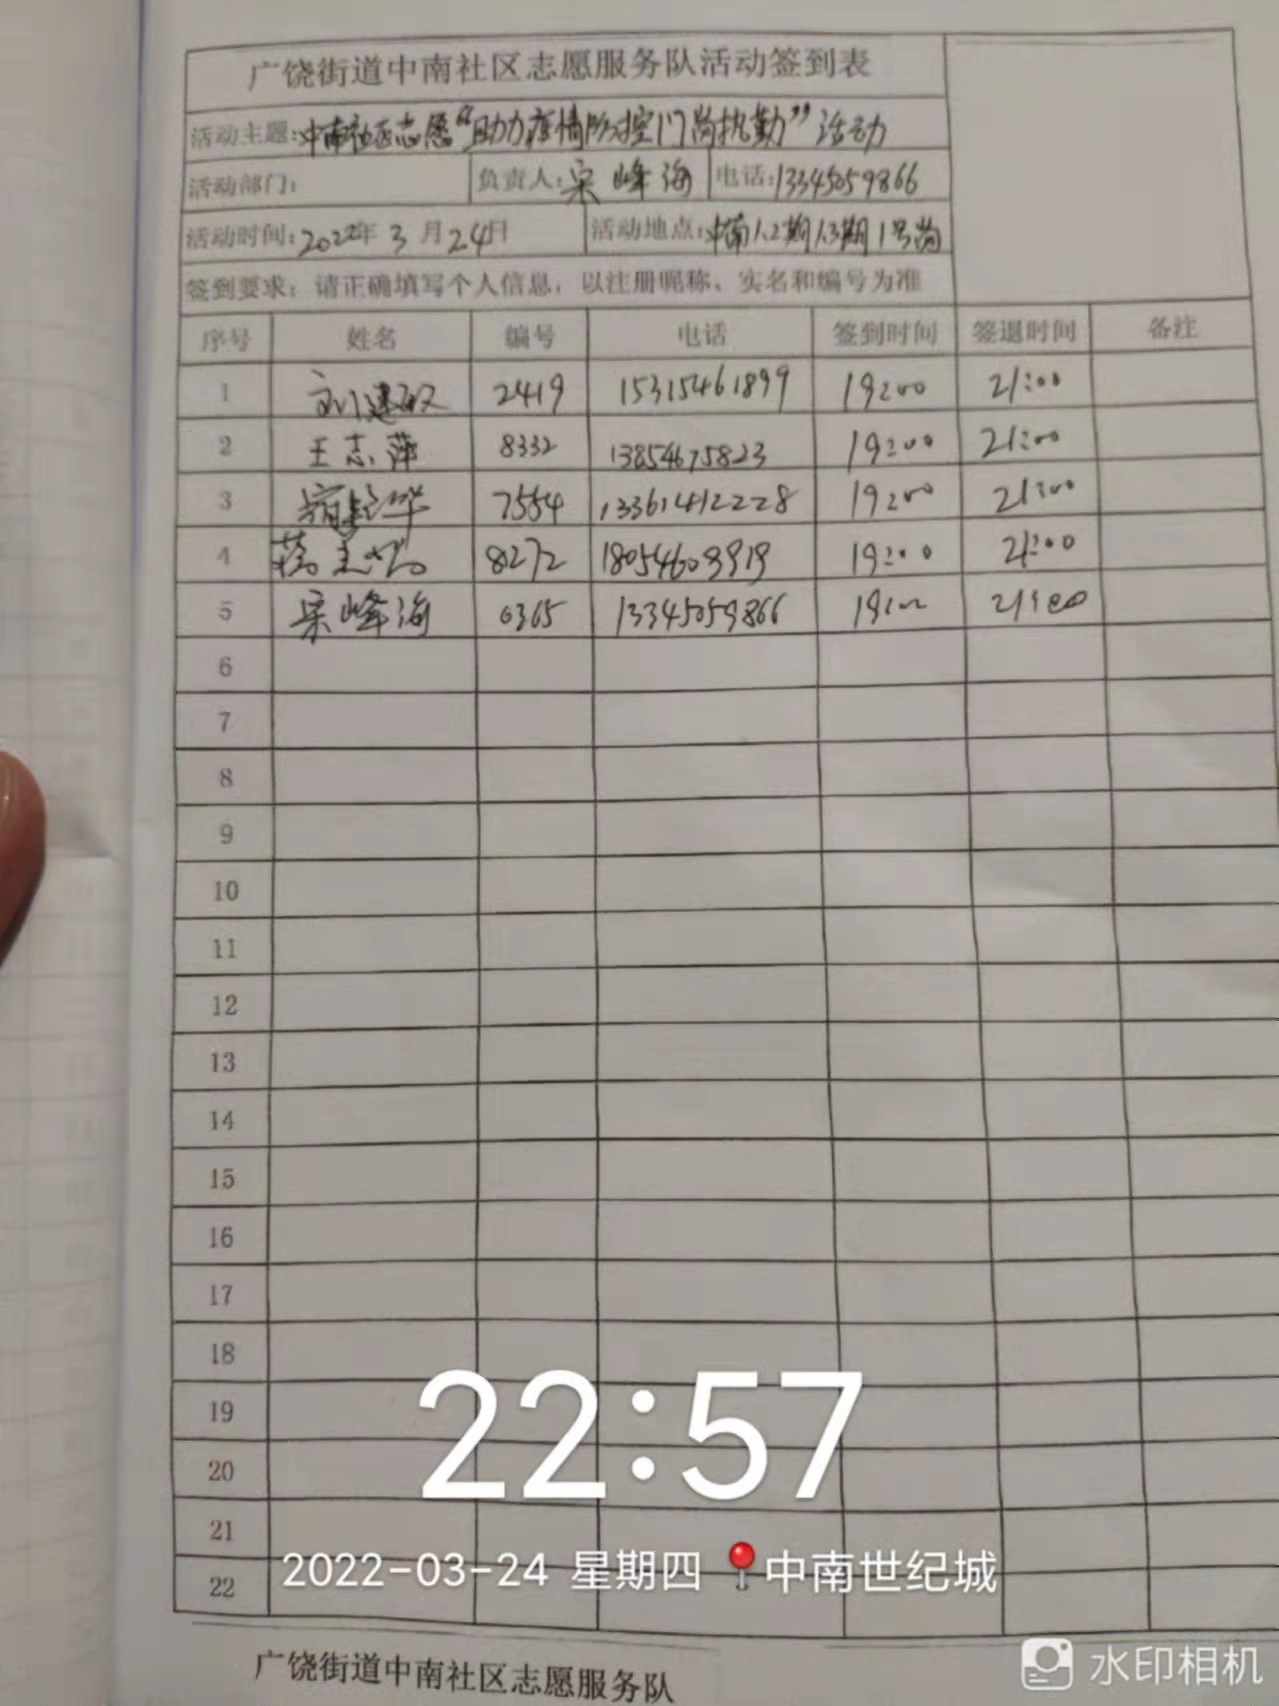 广饶街道中南社区志愿服务队活动签到表
活动主题:中南社区志愿“助力疫情防控门岗执勤”活动
活动部门: 负责人:宋峰海 电话:13345059866
活动时间:2022年3月24日 活动地点:中南1.2期1.3期1号岗
签到要求:请正确填写个人信息,以注册昵称、实名和编号为准
序号 姓名 编号 电话 签到时间 签退时间 备注
1 刘建敏 2419 15315461899 19:00 21:00
2 王志萍 8332 13854675823 19:00 21:00
3 7554 13361412228 19:00 21:00
4 8272 18054603919 19:00 21:00
5 宋峰海 0365 13345059866 19:00 21:00
6
7
8
9
10
11
12
13
14
15
16
17
18
19
20
21
22
22:57
2022-03-24 星期四 中南世纪城
广饶街道中南社区志愿服务队
水印相机